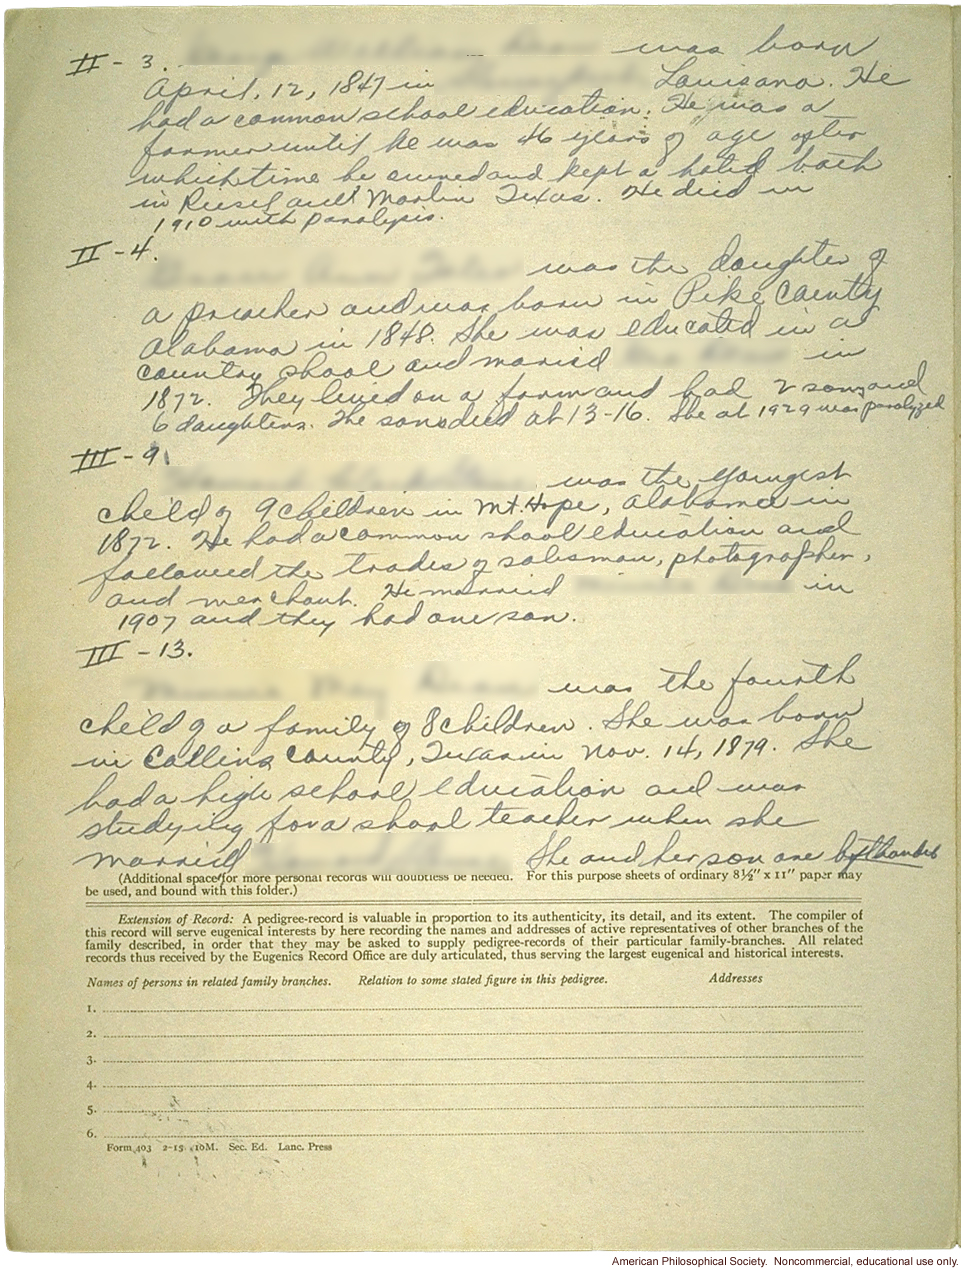 II - 3. was born
April, 12, 1847 in Louisana. He
had a common school education. He was a
farmer until he was 46 years of age after
which time he owned and kept a hotel both
in Riesel and Marlin Texas. He died in
1910 with paralysis.
II - 4.
was the daughter of
a preacher and was born in Pike County
Alabama in 1848. She was educated in a
country shool and married in
1872. They lived on a farm and had 2 sons and
6 daughters. The sons died at 13-16. She at 1929 was paralyzed
III - 9.
was the youngest
child of 9 children in Mt. Hope, Alabama in
1872. He had a common shool education and
followed the trades of salesman, photographer,
and merchant. He married in
1907 and they had one son.
III - 13.
was the fourth
child of a family of 8 children. She was born
in Collins County, Texas in Nov. 14, 1879. She
had a high school education and was
studying for a shool teacher when she
married She and her son are
(Additional space for more personal records will doubtless be needed. For this purpose sheets of ordinary 8½" x 11" paper may
be used, and bound with this folder.)
Extension of Record: A pedigree-record is valuable in proportion to its authenticity, its detail, and its extent. The compiler of
this record will serve eugenical interests by here recording the names and addresses of active representatives of other branches of the
family described, in order that they may be asked to supply pedigree-records of their particular family-branches. All related
records thus received by the Eugenics Record Office are duly articulated, thus serving the largest eugenical and historical interests.
Names of persons in related family branches. Relation to some stated figure in this pedigree. Addresses
1.
2.
3.
4.
5.
6.
Form 403 2-15 10M. Sec. Ed. Lanc. Press
American Philosophical Society. Noncommercial, educational use only.